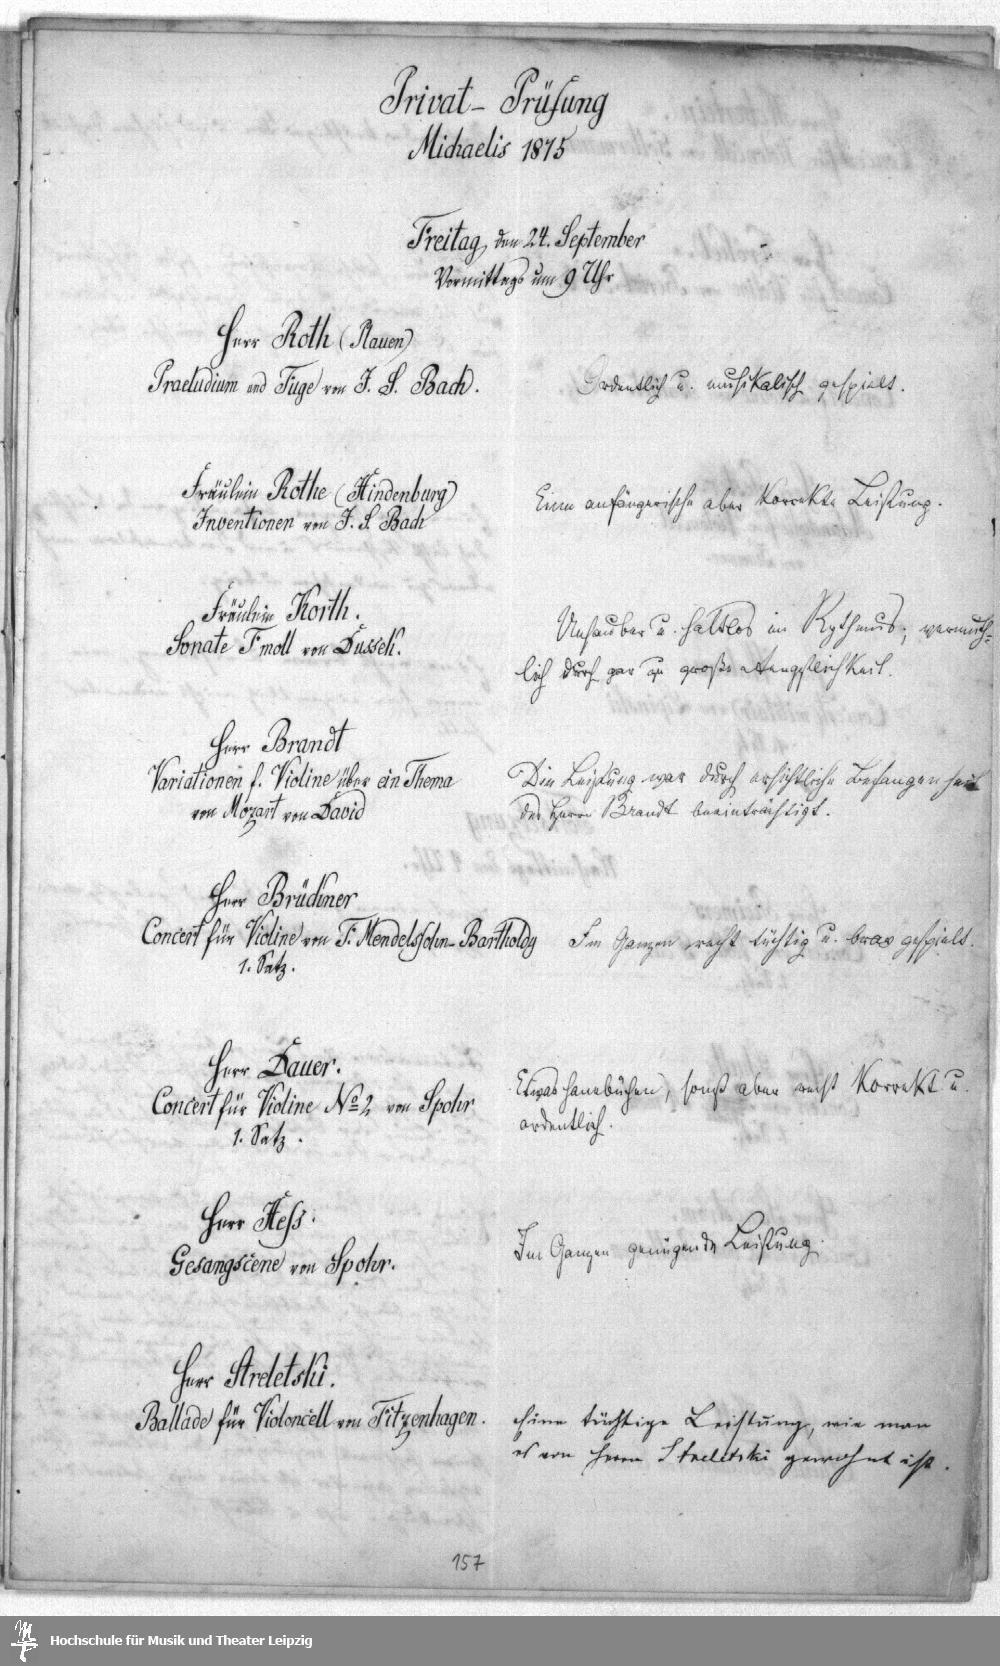 Privat-Prüfung
Michaelis 1875
Freitag, den 24. September
Vormittags um 9 Uhr
Herr Roth (Plauen)
Praeludium und Fuge von J. S. Bach.
Ordentlich u. musikalisch gespielt.
Fräulein Rothe (Hindenburg)
Inventionen von J. S. Bach
Eine anfängerische aber korrekte Leistung.
Fräulein Korth.
Sonate Fmoll von Dussek.
Unsauber u. haltlos im Rythmus; vermuth-
lich durch gar zu große Aengstlichkeit.
Herr Brandt
Variationen f. Violine über ein Thema
von Mozart von David
Die Leistung war durch ersichtliche Befangenheit
des Herrn Brandt beeinträchtigt.
Herr Brückner
Concert für Violine von F. Mendelssohn-Bartholdy
1. Satz.
Im Ganzen recht tüchtig u. brav gespielt.
Herr Dauer.
Concert für Violine No 2 von Spohr
1. Satz.
Etwas hanebüchen, sonst aber recht korrekt u
ordentlich.
Herr Hess.
Gesangscene von Spohr.
Im Ganzen genügende Leistung.
Herr Streletski.
Ballade für Violoncell von Fitzenhagen.
Eine tüchtige Leistung, wie man
es von Herrn Streletski gewohnt ist.
157
Hochschule für Musik und Theater Leipzig